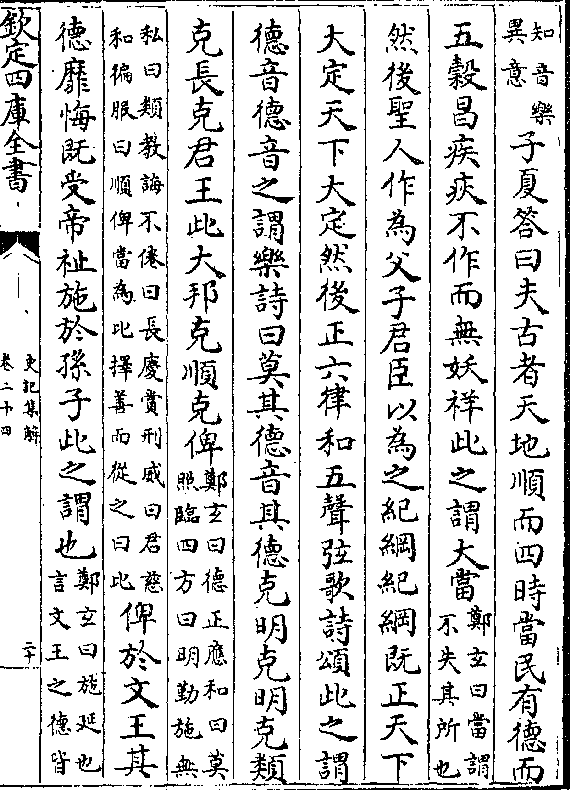 知音樂
異意
子夏答曰夫古者天地順而四時當民有德而
五穀昌疾疢不作而無妖祥此之謂大當
鄭玄曰當謂
不失其所也
然後聖人作為父子君臣以為之紀綱紀綱既正天下
大定天下大定然後正六律和五聲弦歌詩頌此之謂
德音德音之謂樂詩曰莫其德音其德克明克明克類
克長克君王此大邦克順克俾
鄭玄曰德正應和曰莫
照臨四方曰明勤施無
私曰類教誨不倦曰長慶賞刑威曰君慈
和徧服曰順俾當為比擇善而從之曰比
俾於文王其
德靡悔既受帝祉施於孫子此之謂也
鄭玄曰施延也
言文王之德皆
欽定四庫全書
史記集解
卷二十四
二十